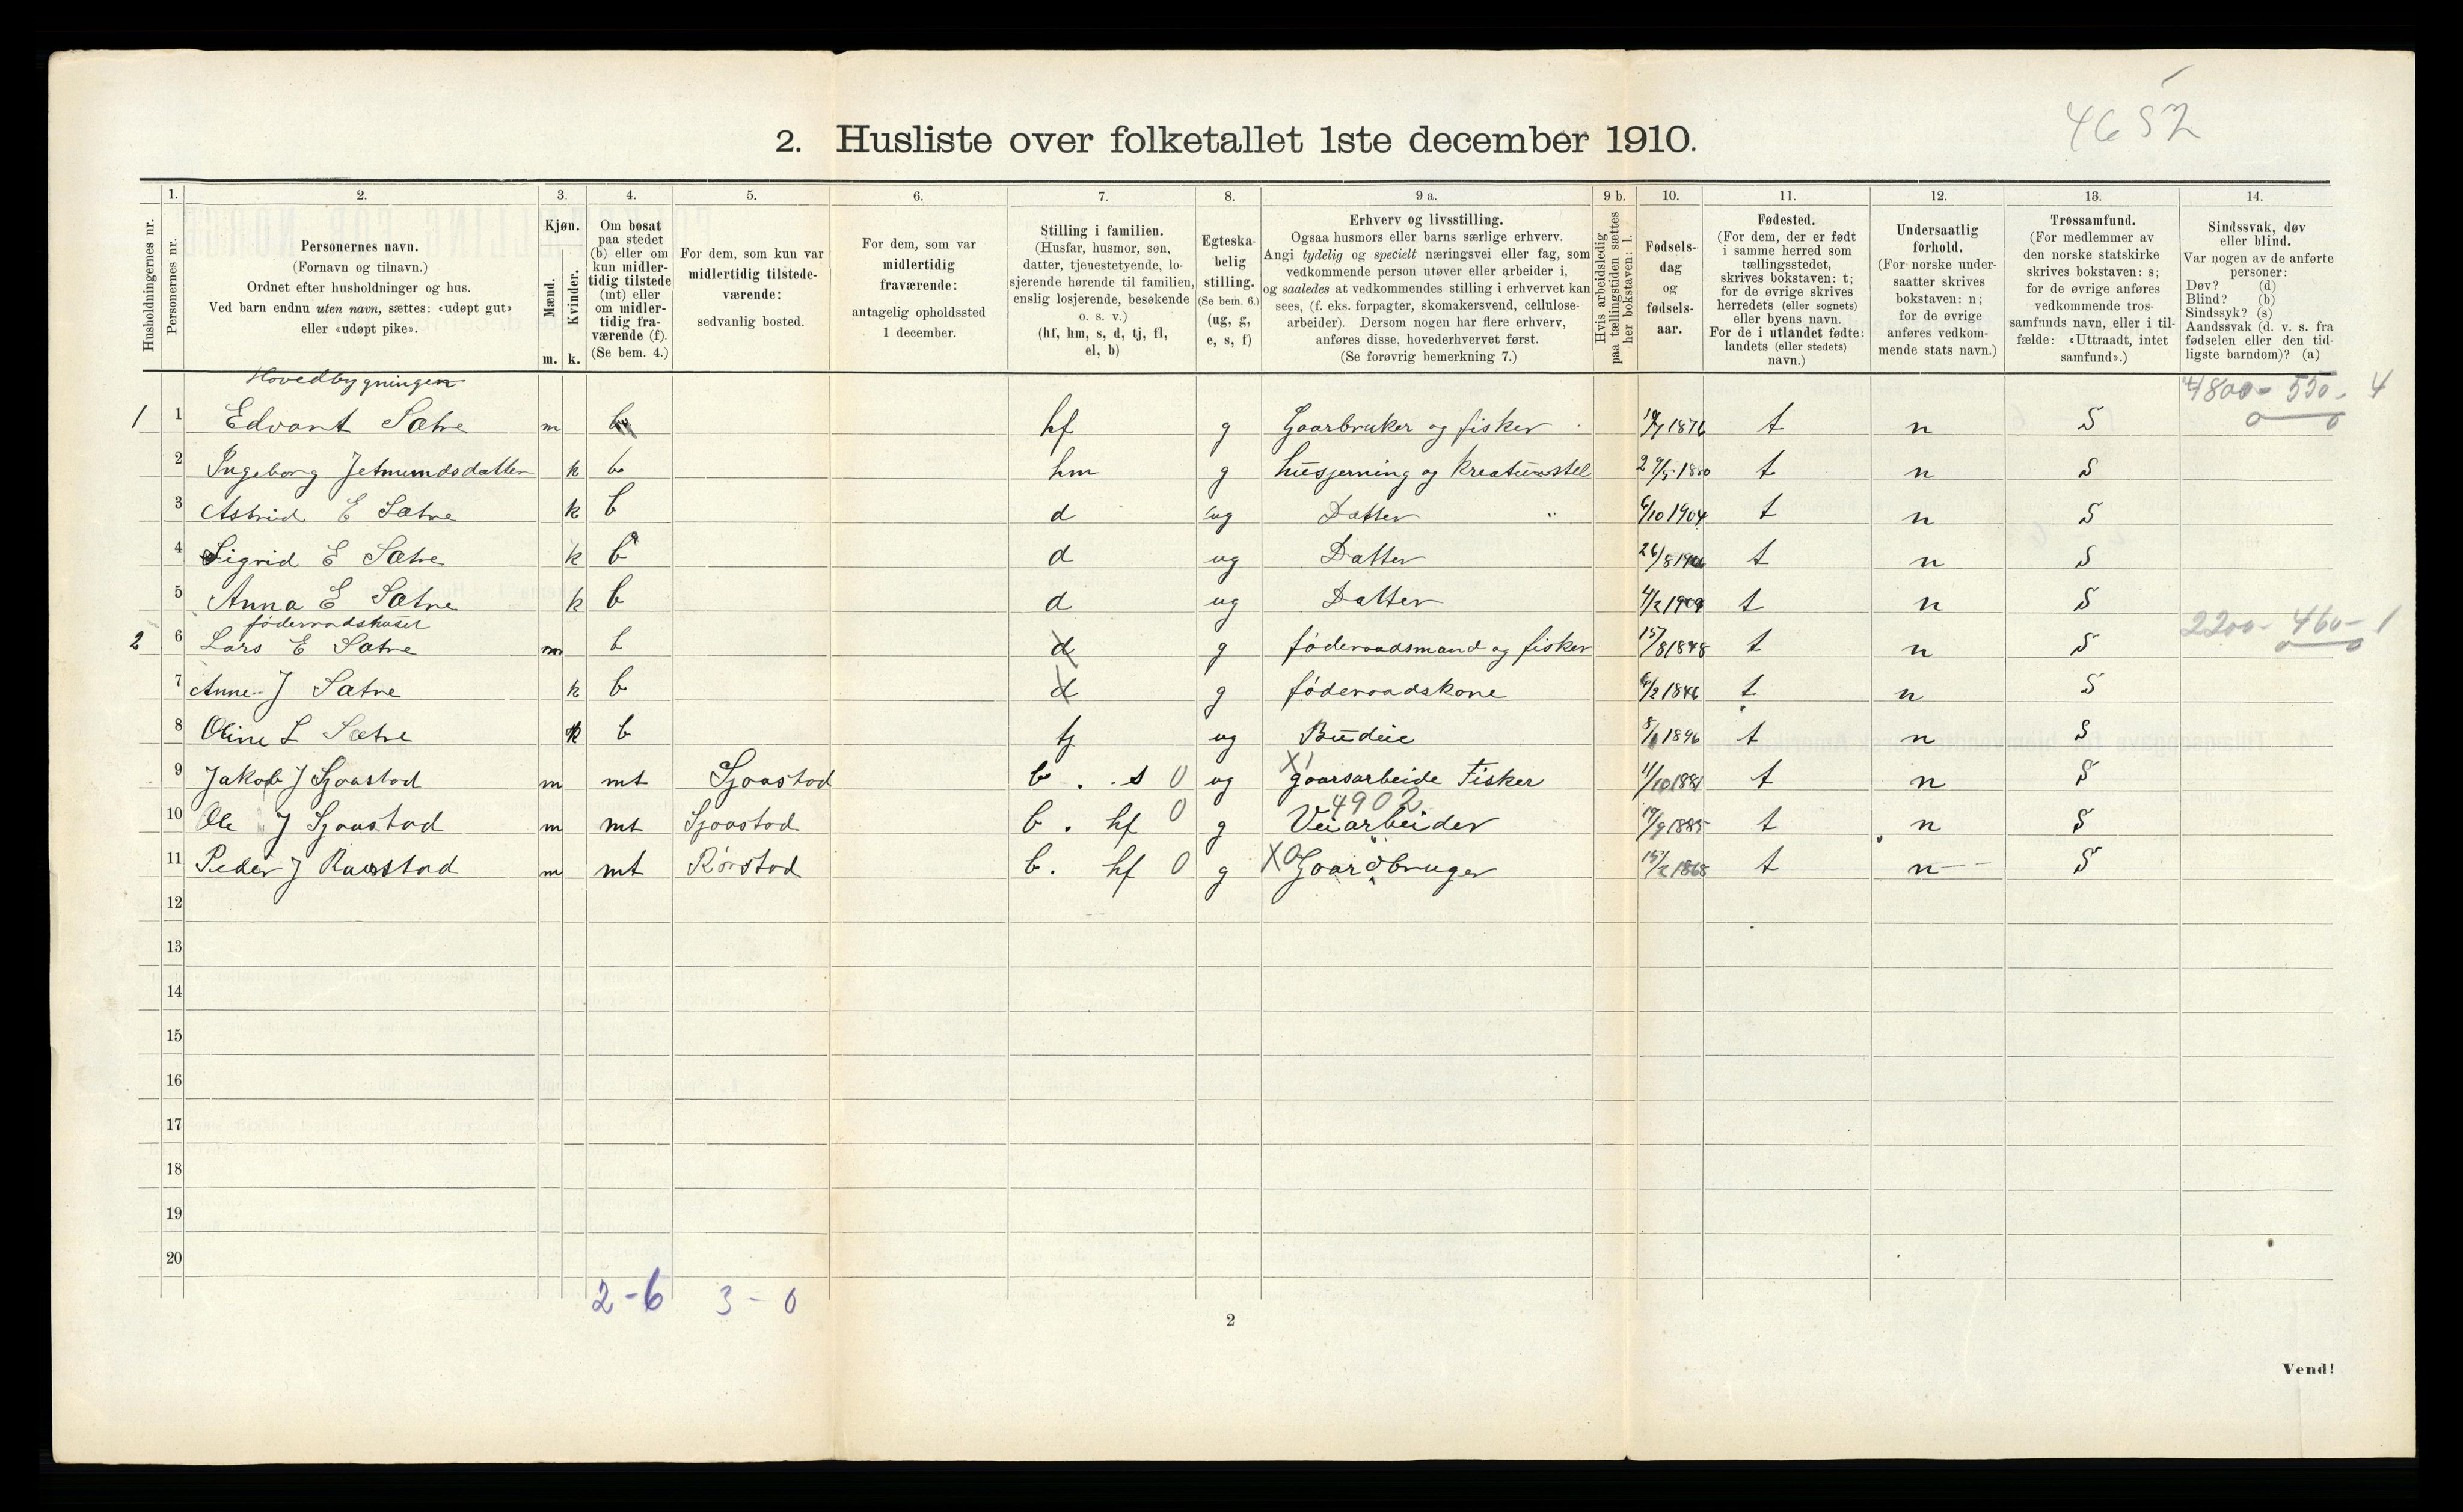 4652
2. Husliste over folketallet 1ste december 1910.
Husholdningernes nr.
1.
Personernes nr.
2.
Personernes navn.
(Fornavn og tilnavn.)
Ordnet efter husholdninger og hus.
Ved barn endnu uten navn, sættes: «udøpt gut»
eller «udøpt pike».
3.
Kjøn.
Mænd.
Kvinder.
m. k.
4.
Om bosat
paa stedet
(b) eller om
kun midler-
tidig tilstede
(mt) eller
om midler-
tidig fra-
værende (f).
(Se bem. 4.)
5.
For dem, som kun var
midlertidig tilstede-
værende:
sedvanlig bosted.
6.
For dem, som var
midlertidig
fraværende:
antagelig opholdssted
1 december.
7.
Stilling i familien.
(Husfar, husmor, søn,
datter, tjenestetyende, lo-
sjerende hørende til familien,
enslig losjerende, besøkende
o. s. v.)
(hf, hm, s, d, tj, fl,
el, b)
8.
Egteska-
belig
stilling.
(Se bem. 6.)
(ug, g,
e, s, f)
9 a.
Erhverv og livsstilling.
Ogsaa husmors eller barns særlige erhverv.
Angi tydelig og specielt næringsvei eller fag, som
vedkommende person utøver eller arbeider i,
og saaledes at vedkommendes stilling i erhvervet kan
sees, (f. eks. forpagter, skomakersvend, cellulose-
arbeider). Dersom nogen har flere erhverv,
anføres disse, hovederhvervet først.
(Se forøvrig bemerkning 7.)
9 b.
Hvis arbeidsledig
paa tællingstiden sættes
her bokstaven: l.
10.
Fødsels-
dag
og
fødsels-
aar.
11.
Fødested.
(For dem, der er født
i samme herred som
tællingsstedet,
skrives bokstaven: t;
for de øvrige skrives
herredets (eller sognets)
eller byens navn.
For de i utlandet fødte:
landets (eller stedets)
navn.)
12.
Undersaatlig
forhold.
(For norske under-
saatter skrives
bokstaven: n;
for de øvrige
anføres vedkom-
mende stats navn.)
13.
Trossamfund.
(For medlemmer av
den norske statskirke
skrives bokstaven: s;
for de øvrige anføres
vedkommende tros-
samfunds navn, eller i til-
fælde: «Uttraadt, intet
samfund».)
14.
Sindssvak, døv
eller blind.
Var nogen av de anførte
personer:
Døv? (d)
Blind? (b)
Sindssyk? (s)
Aandssvak (d. v. s. fra
fødselen eller den tid-
ligste barndom)? (a)
Hovedbygningen
4800- 550- 4
1 1 Edvart Sætre m b hf g Gaarbruker og fisker 1876 t n S
2 Ingeborg Jetmundsdatter k b hm g husjerning og kreaturstel 29/5 1880 t n S
3 Astrid E Sætre k b d ug Datter " 6/10 1904 t n S
4 Sigrid E Sætre k b d ug Datter 26/8 1906 t n S
5 Anna E Sætre k b d ug Datter 4/2 1909 t n S
føderaadshuset
2200- 460- 1
2 6 Lars E Sætre m b d g føderaadsmand og fisker 15/8 1848 t n S
7 Anne J Sætre k b d g føderaadskone 6/2 1846 t n S
8 Oline L Sætre k b tj ug Budeie 8/1 1896 t n S
9 Jakob J Sjaastad m mt Sjaastad b . s 0 ug X1 gaarsarbeide Fisker 11/10 1881 t n S
4902
10 Ole J Sjaastad m mt Sjaastad b . hf 0 g Veiarbeider 19/9 1885 t n S
11 Peder J Raustad m mt Rørstad b . hf 0 g X0 Gaardbruger 15/2 1868 t n S
12
13
14
15
16
17
18
19
20
2-6 3-0
2
Vend!